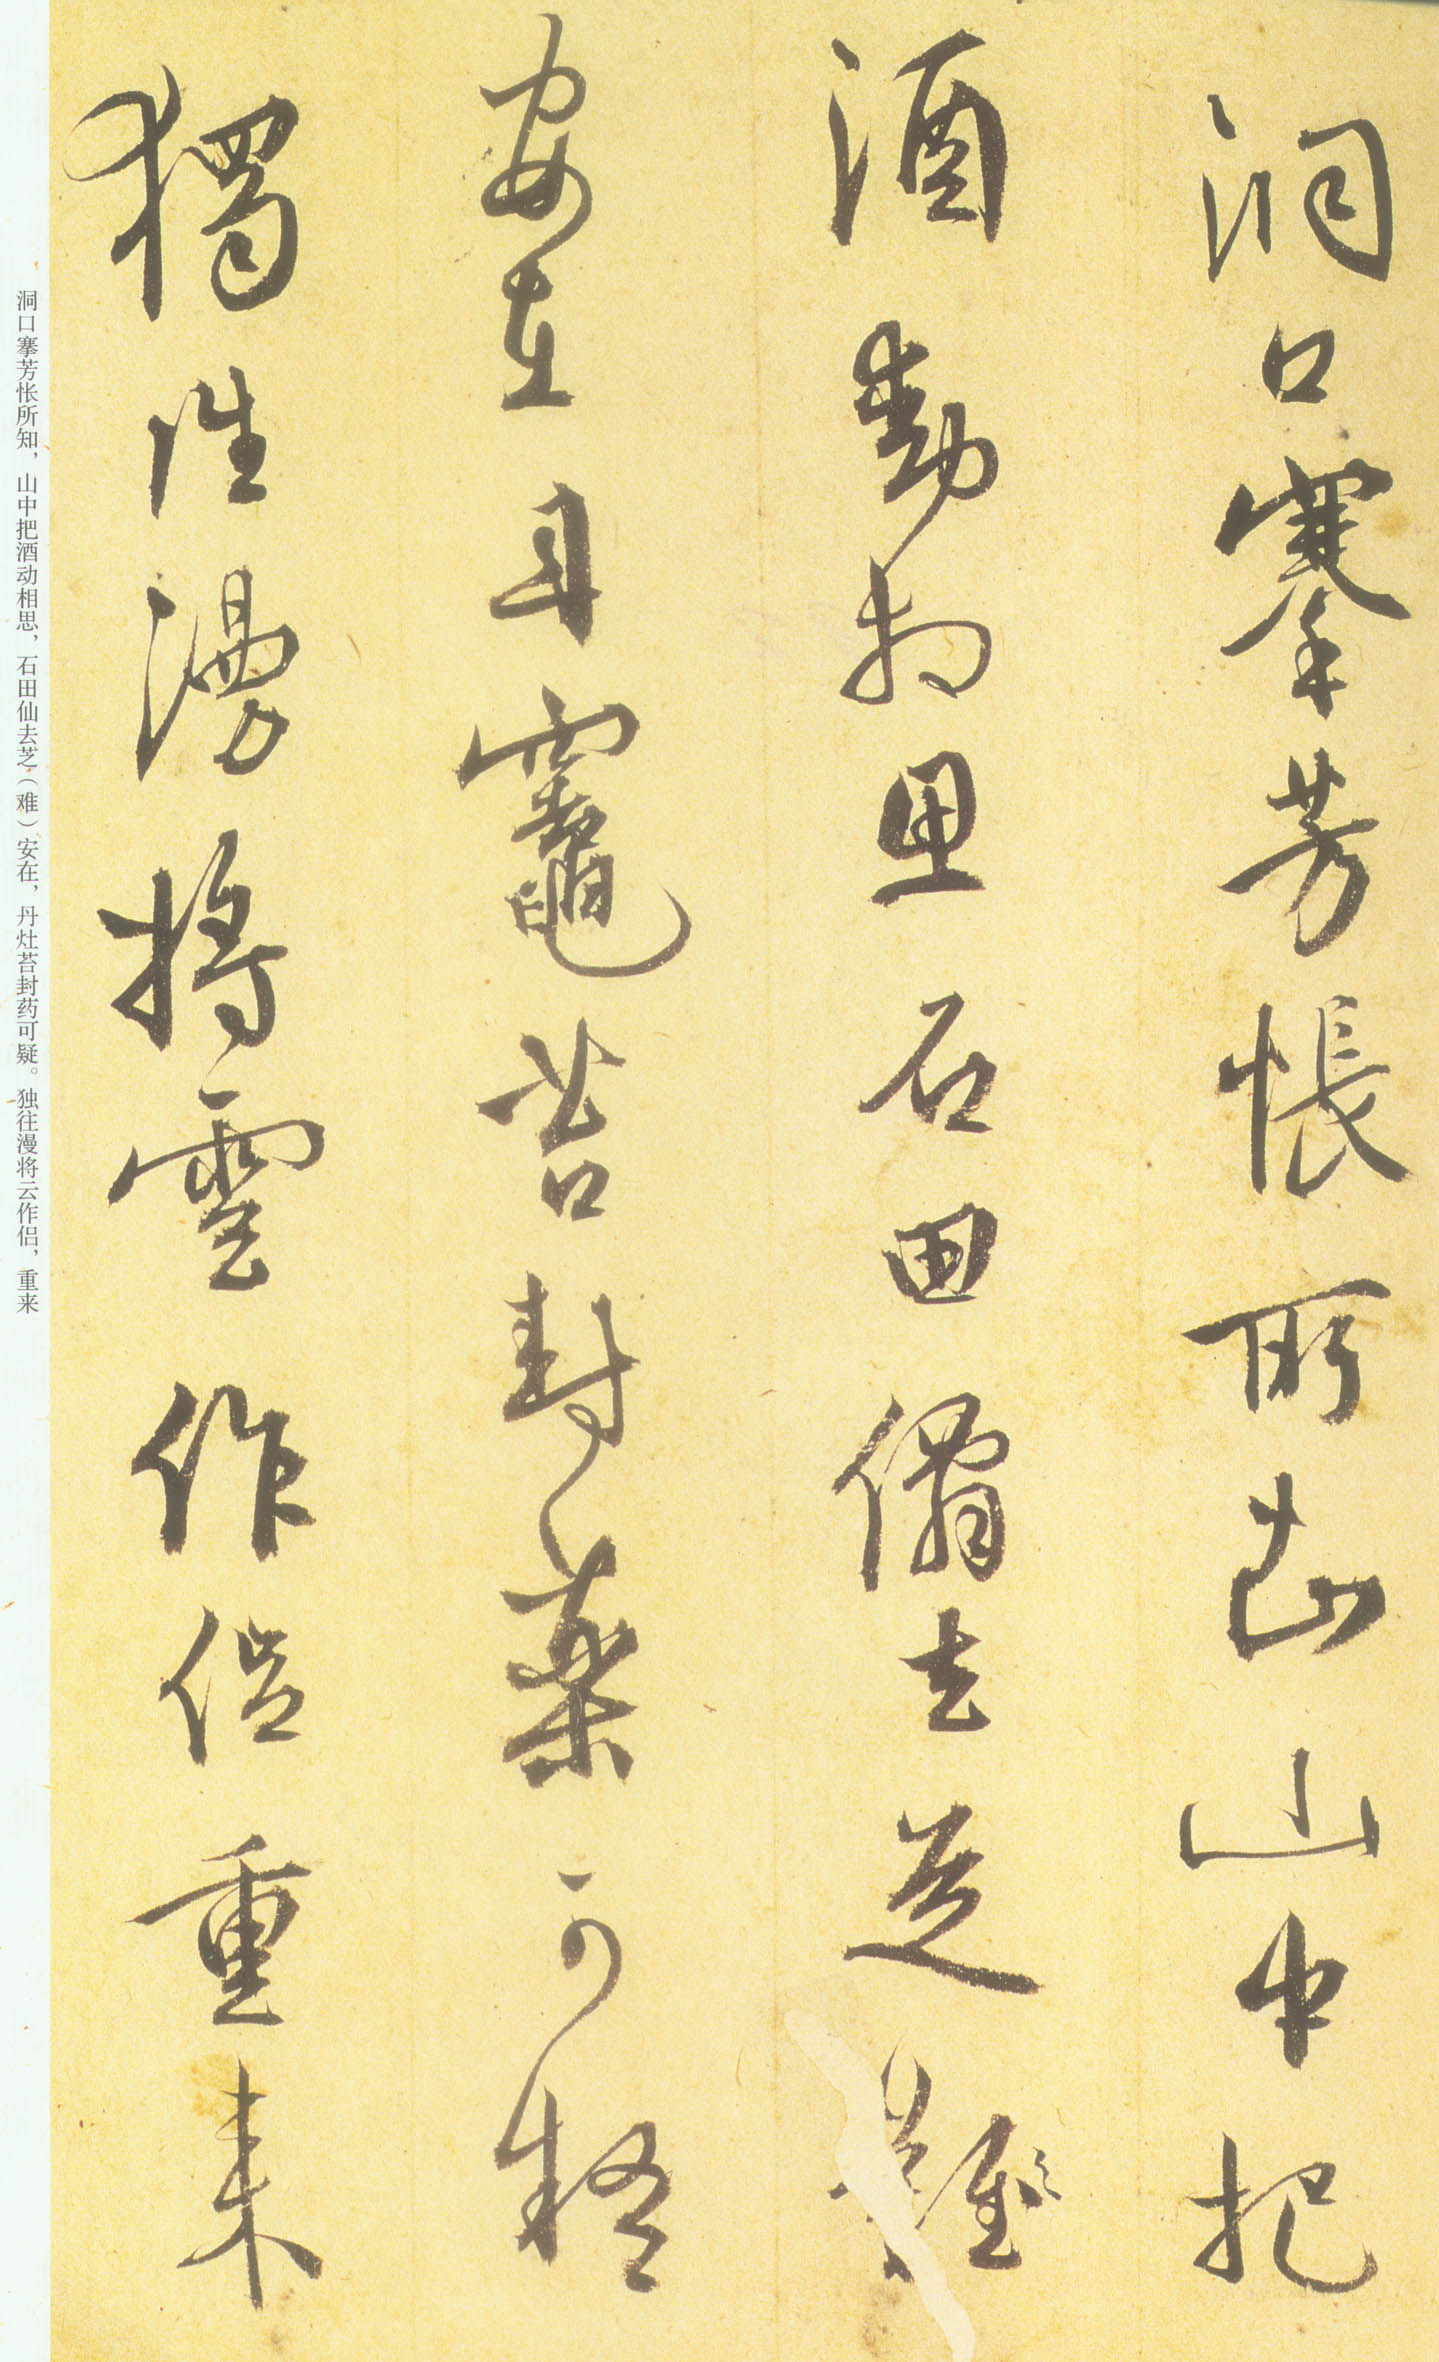 洞口搴芳悵所山中把
酒動相思石田僊去芝難
安在丹竈苔封藥可疑
獨往漫將雲作侶重来
洞口搴芳怅所知，山中把酒动相思，石田仙去芝（难）安在，丹灶苔封药可疑。独往漫将云作侣，重来